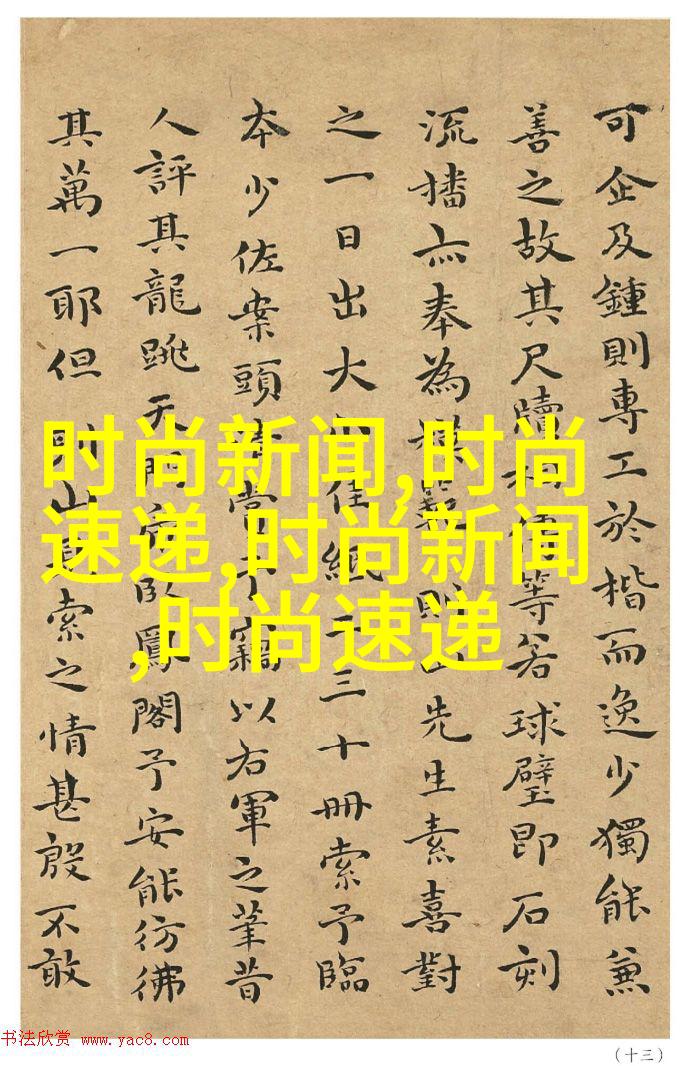 可企及鍾則專工於楷而逸少獨能兼
善之故其尺牘傳等若球璧即石刻
流播亦奉為模範則山先生素喜對
之一日出大小佳紙二三十冊索予臨
本少佐案頭清賞予竊以右軍之筆昔
人評其龍跳天門虎臥鳳閣予安能彷彿
其萬一耶但則山見索之情甚殷不敢
时尚新闻,时尚
速递,时尚新闻
,时尚速递
书法欣赏 www.yac8.com
(十三)